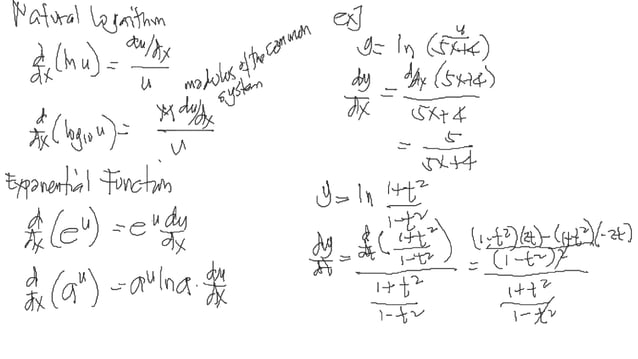 Natural Logarithm
d/dx (ln u) = (du/dx)/u
d/dx (log₁₀ u) = (M du/dx)/u
modulus of the common
system
Exponential Function
d/dx (e^u) = e^u du/dx
d/dx (a^u) = a^u ln a · du/dx
ex]
u
y = ln (5x+4)
dy/dx = (d/dx (5x+4))/(5x+4)
= 5/(5x+4)
y = ln (1+t²)/(1-t²)
dy/dt = (d/dt ((1+t²)/(1-t²)))/((1+t²)/(1-t²)) = (((1-t²)(2t)-(1+t²)(-2t))/(1-t²)²)/((1+t²)/(1-t²))